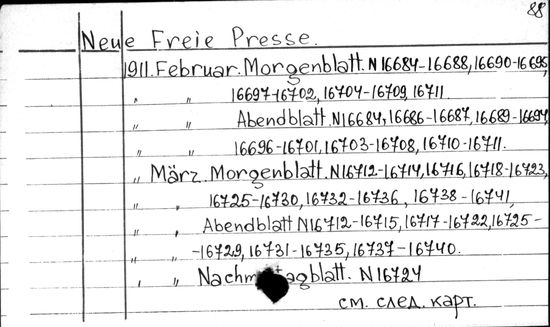 88
Neue Freie Presse.
1911. Februar. Morgenblatt. N 16684-16688, 16690-16695,
" " 16697-16702, 16704-16709, 16711.
" " Abendblatt. N 16684, 16686-16687, 16689-16694,
" " 16696-16701, 16703-16708, 16710-16711.
" März. Morgenblatt. N 16712-16714, 16716, 16718-16723,
" " 16725-16730, 16732-16736, 16738-16741,
" " Abendblatt N 16712-16715, 16717-16722, 16725-
" " -16729, 16731-16735, 16737-16740.
" " Nachm tagblatt. N 16724
см. след. карт.